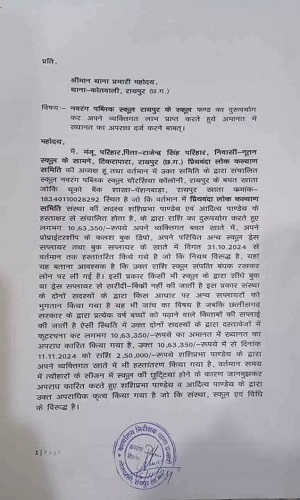 प्रति,
श्रीमान थाना प्रभारी महोदय,
थाना-कोतवाली, रायपुर (छ.ग.)
विषय:- नवरंग पब्लिक स्कूल रायपुर के स्कूल फण्ड का दुरूपयोग
कर अपने व्यक्तिगत लाभ प्राप्त करते हुये अमानत में
ख्यानत का अपराध दर्ज करने बाबत्।
महोदय,
में, मंजू परिहार,पिता-राजेन्द्र सिंह परिहार, निवासी-नूतन
स्कूल के सामने, टिकरापारा, रायपुर (छ.ग.) प्रियम्वदा लोक कल्याण
समिति की अध्यक्ष हूं तथा वर्तमान में उक्त समिति के द्वारा संचालित
स्कूल नवरंग पब्लिक स्कूल चौरसिया कॉलोनी, रायपुर के बचत खाता
जोकि यूको बैंक शाखा-पेंशनबाड़ा, रायपुर खाता क्रमांक-
18340110028292 स्थित है जो कि वर्तमान में प्रियम्वदा लोक कल्याण
समिति संस्था की सदस्य शशिप्रभा पाण्डेय एवं आदित्य पाण्डेय के
हस्ताक्षर से संचालित होता है, के द्वारा राशि का दुरूपयोग करते हुए
लगभग 10,63,350/-रूपये अपने व्यक्तिगत बचत खाते में, अपने
प्रोप्राईटरशीप के कलश बुक डिपो, अपने परिचित अन्य स्कूल ड्रेस
सप्लायर तथा बुक सप्लायर के खाते में विगत 31.10.2024 से
वर्तमान तक हस्तांतरित किये गये है जो कि नियम विरूद्ध है, यहां
यह बताना आवश्यक है कि उक्त राशि स्कूल संपत्ति बंधक रखकर
लोन पर ली गई है। इसी प्रकार किसी भी स्कूल के द्वारा सीधे बुक
या ड्रेस सप्लायर से खरीदी-बिक्री नहीं की जाती है इस प्रकार संस्था
के दोनों सदस्यों के द्वारा किस आधार पर अन्य सप्लायरों को
भुगतान किया गया है यह भी जांच का विषय है जबकि छत्तीसगढ़
सरकार के द्वारा प्रत्येक वर्ष बच्चों को पढ़ाने वाले किताबों की सप्लाई
की जाती है ऐसी स्थिति में उक्त दोनों सदस्यों के द्वारा दस्तावेजों में
कूटरचना कर लगभग 10,63,350/-रूपये का अमानत में ख्यानत का
अपराध कारित किया गया है, उक्त 10,63,350/-रूपये में से दिनांक
11.11.2024 को राशि 2,50,000/-रूपये शशिप्रभा पाण्डेय के द्वारा
अपने व्यक्तिगत खाते में भी हस्तांतरण किया गया है, वर्तमान समय
में त्यौहारों के सीजन में स्कूल की छुट्टियां होने के कारण जानबुझकर
अपराध कारित करते हुए शशिप्रभा पाण्डेय व आदित्य पाण्डेय के द्वारा
उक्त अपराधिक कृत्य किया गया है जो कि संस्था, स्कूल एवं विधि
के विरूद्ध है।
1 | Page